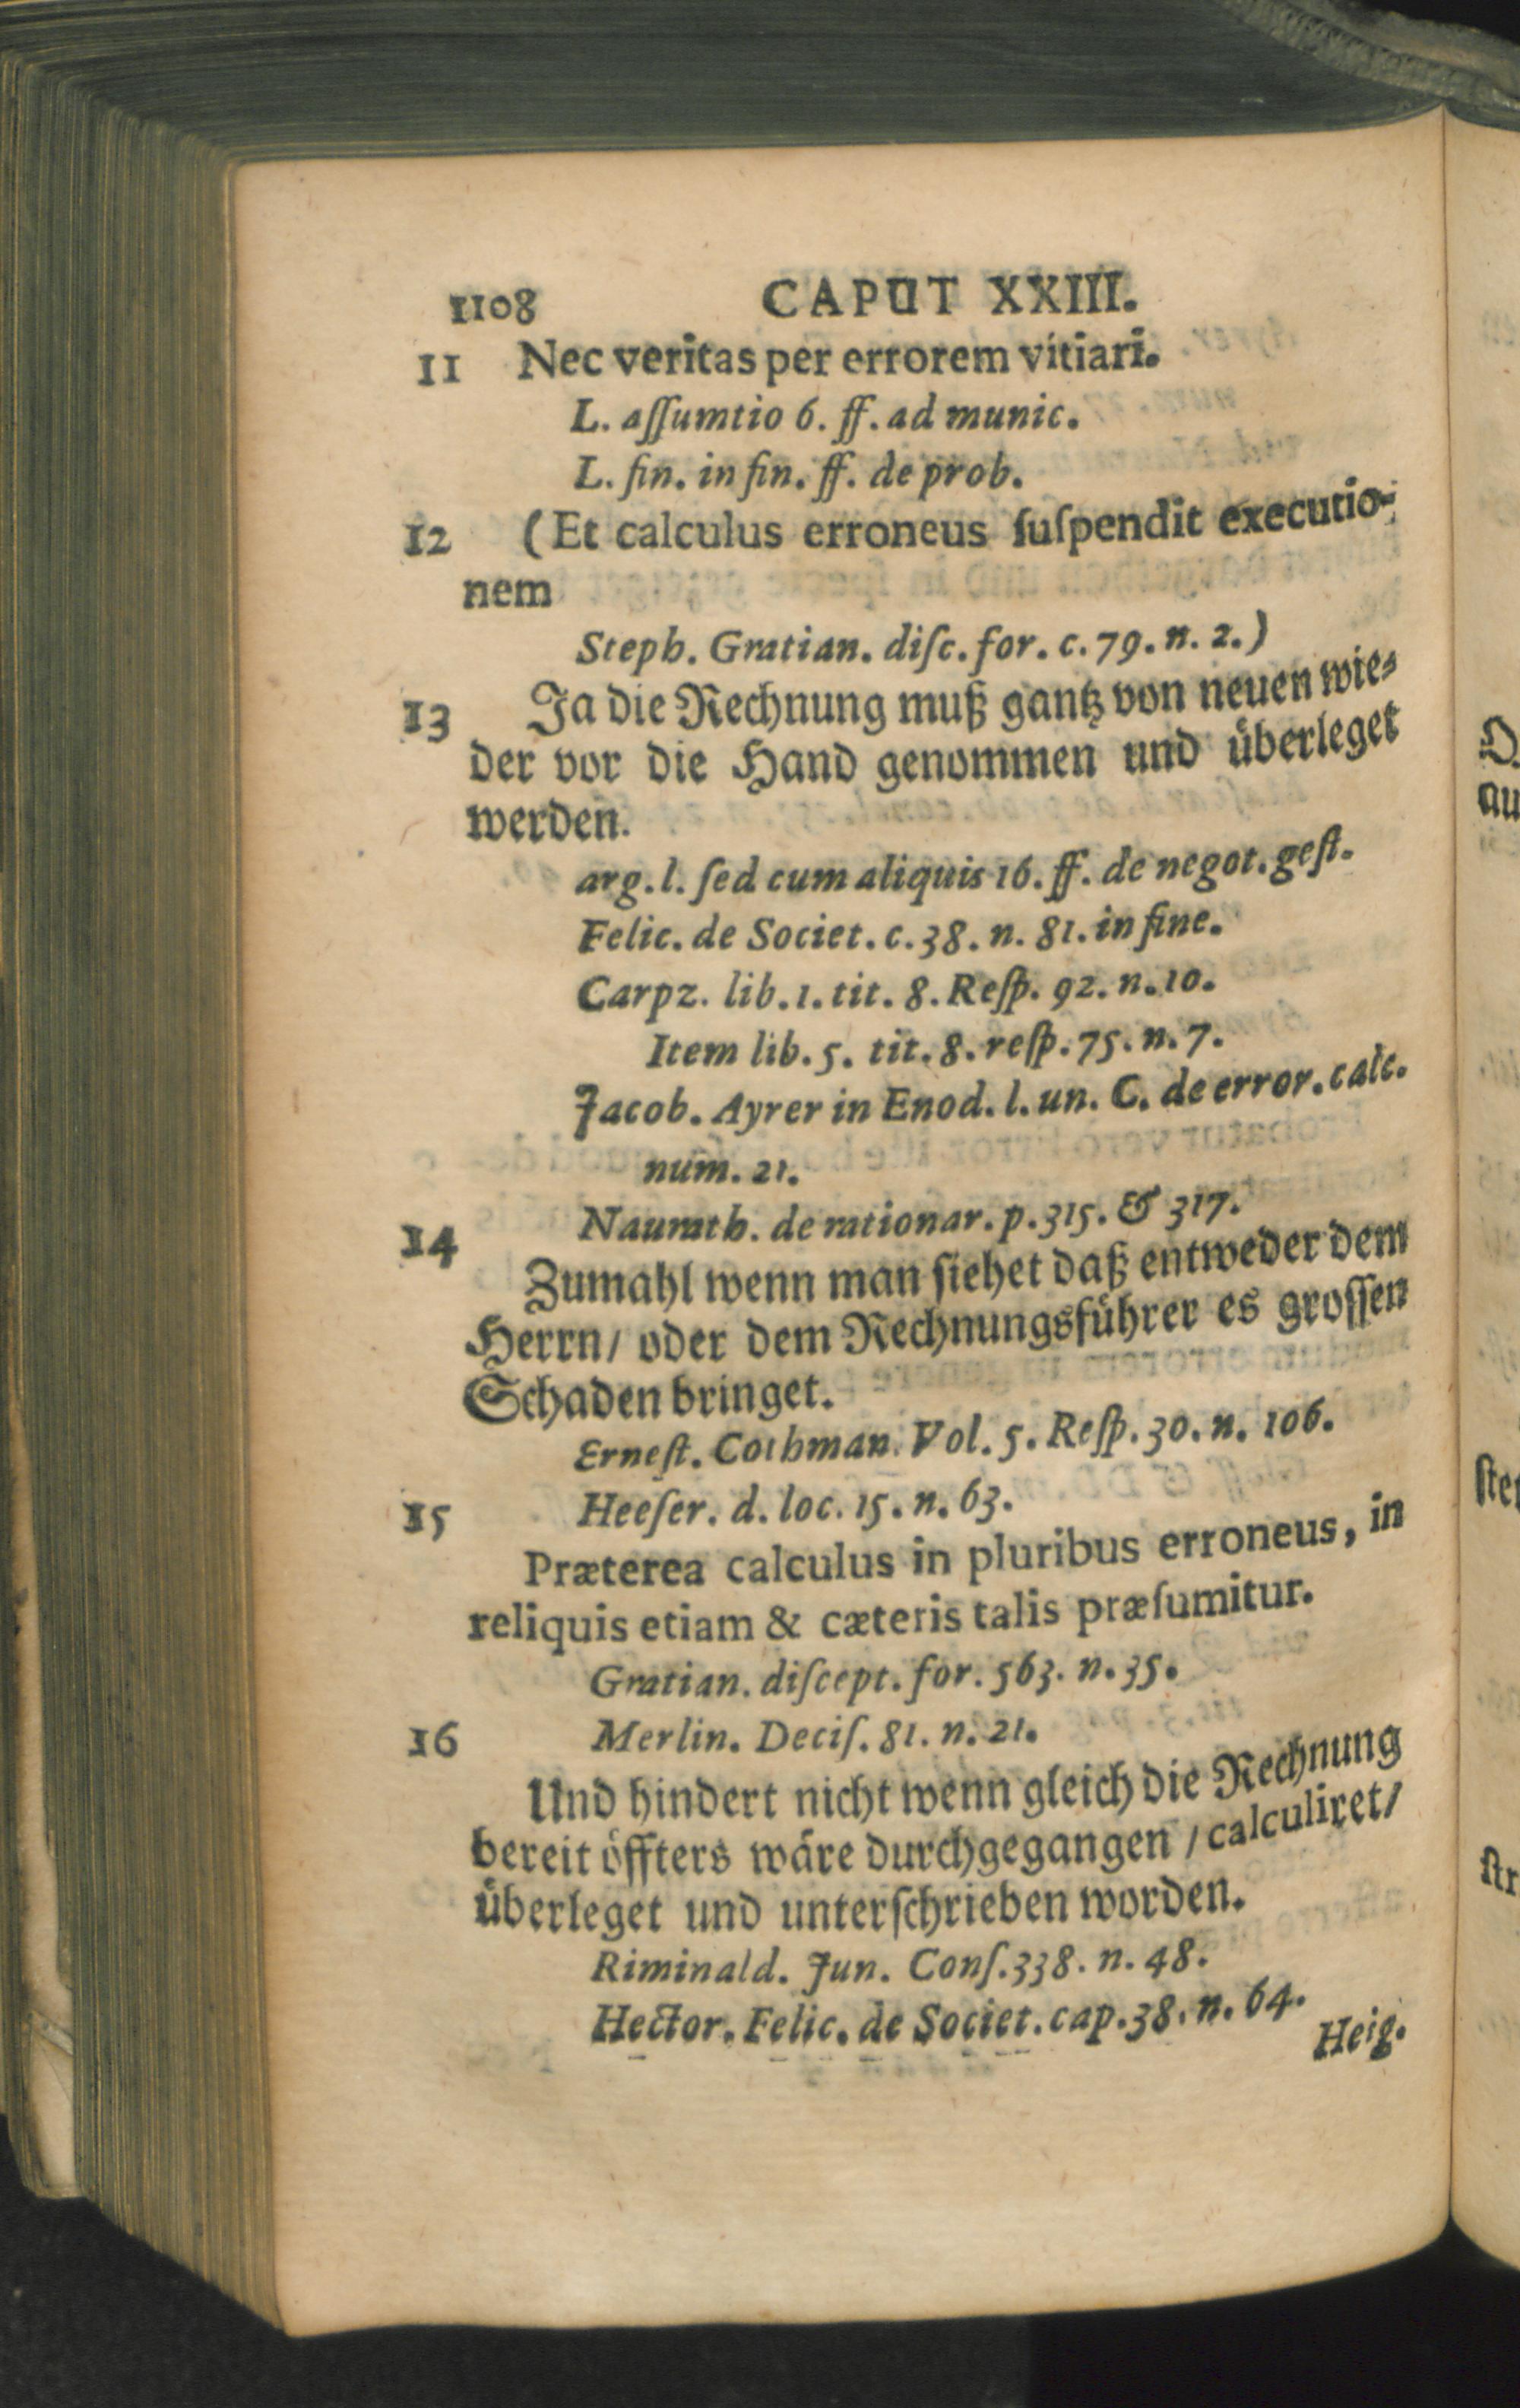 1108 CAPUT XXIII.
11 Nec veritas per errorem vitiari.
L. aſſumtio 6. ff. ad munic.
L. fin. in fin. ff. de prob.
12 (Et calculus erroneus ſuſpendit executio-
nem
Steph. Gratian. diſc. for. c. 79. n. 2.)
13 Ja die Rechnung muß gantz von neuen wie-
der vor die Hand genommen und überleget
werden.
arg. l. ſed cum aliquis 16. ff. de negot. geſt.
Felic. de Societ. c. 38. n. 81. in fine.
Carpz. lib. 1. tit. 8. Reſp. 92. n. 10.
Item lib. 5. tit. 8. reſp. 75. n. 7.
Jacob. Ayrer in Enod. l. un. C. de error. calc.
num. 21.
Naurath. de rationar. p. 315. & 317.
14 Zumahl wenn man ſiehet daß entweder dem
Herrn/ oder dem Rechnungsführer es groſſen
Schaden bringet.
Erneſt. Cothman. Vol. 5. Reſp. 30. n. 106.
Heeſer. d. loc. 15. n. 63.
15 Præterea calculus in pluribus erroneus, in
reliquis etiam & cæteris talis præſumitur.
Gratian. diſcept. for. 563. n. 35.
Merlin. Deciſ. 81. n. 21.
16 Und hindert nicht wenn gleich die Rechnung
bereit öffters wäre durchgegangen / calculiret/
überleget und unterſchrieben worden.
Riminald. Jun. Conſ. 338. n. 48.
Hector. Felic. de Societ. cap. 38. n. 64.
Heig.